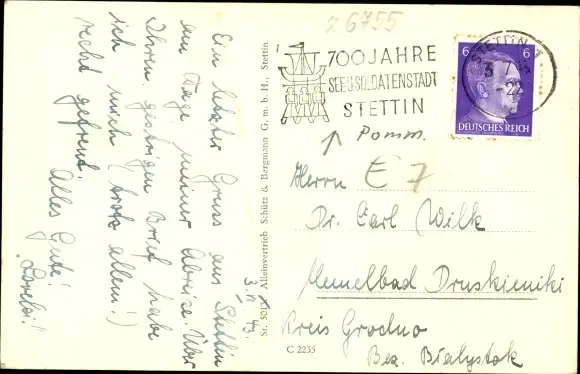 z 6755
Ein letzter Gruss aus Stettin
am Tage meiner Abreise. Über
Ihren gestrigen Brief habe
ich mich (trotz allem!)
recht gefreut.
Alles Gute!
3. 43.
St. Alleinvertrieb Schütz & Bergmann G. m. b. H., Stettin
700 JAHRE
SEE U. SOLDATENSTADT
STETTIN
STETTIN
6 6
DEUTSCHES REICH
Pomm.
Herrn E 7
Dr. Carl Wilk
Memelbad Druskieniki
Kreis Grodno
Bez. Bialystok
C 2235